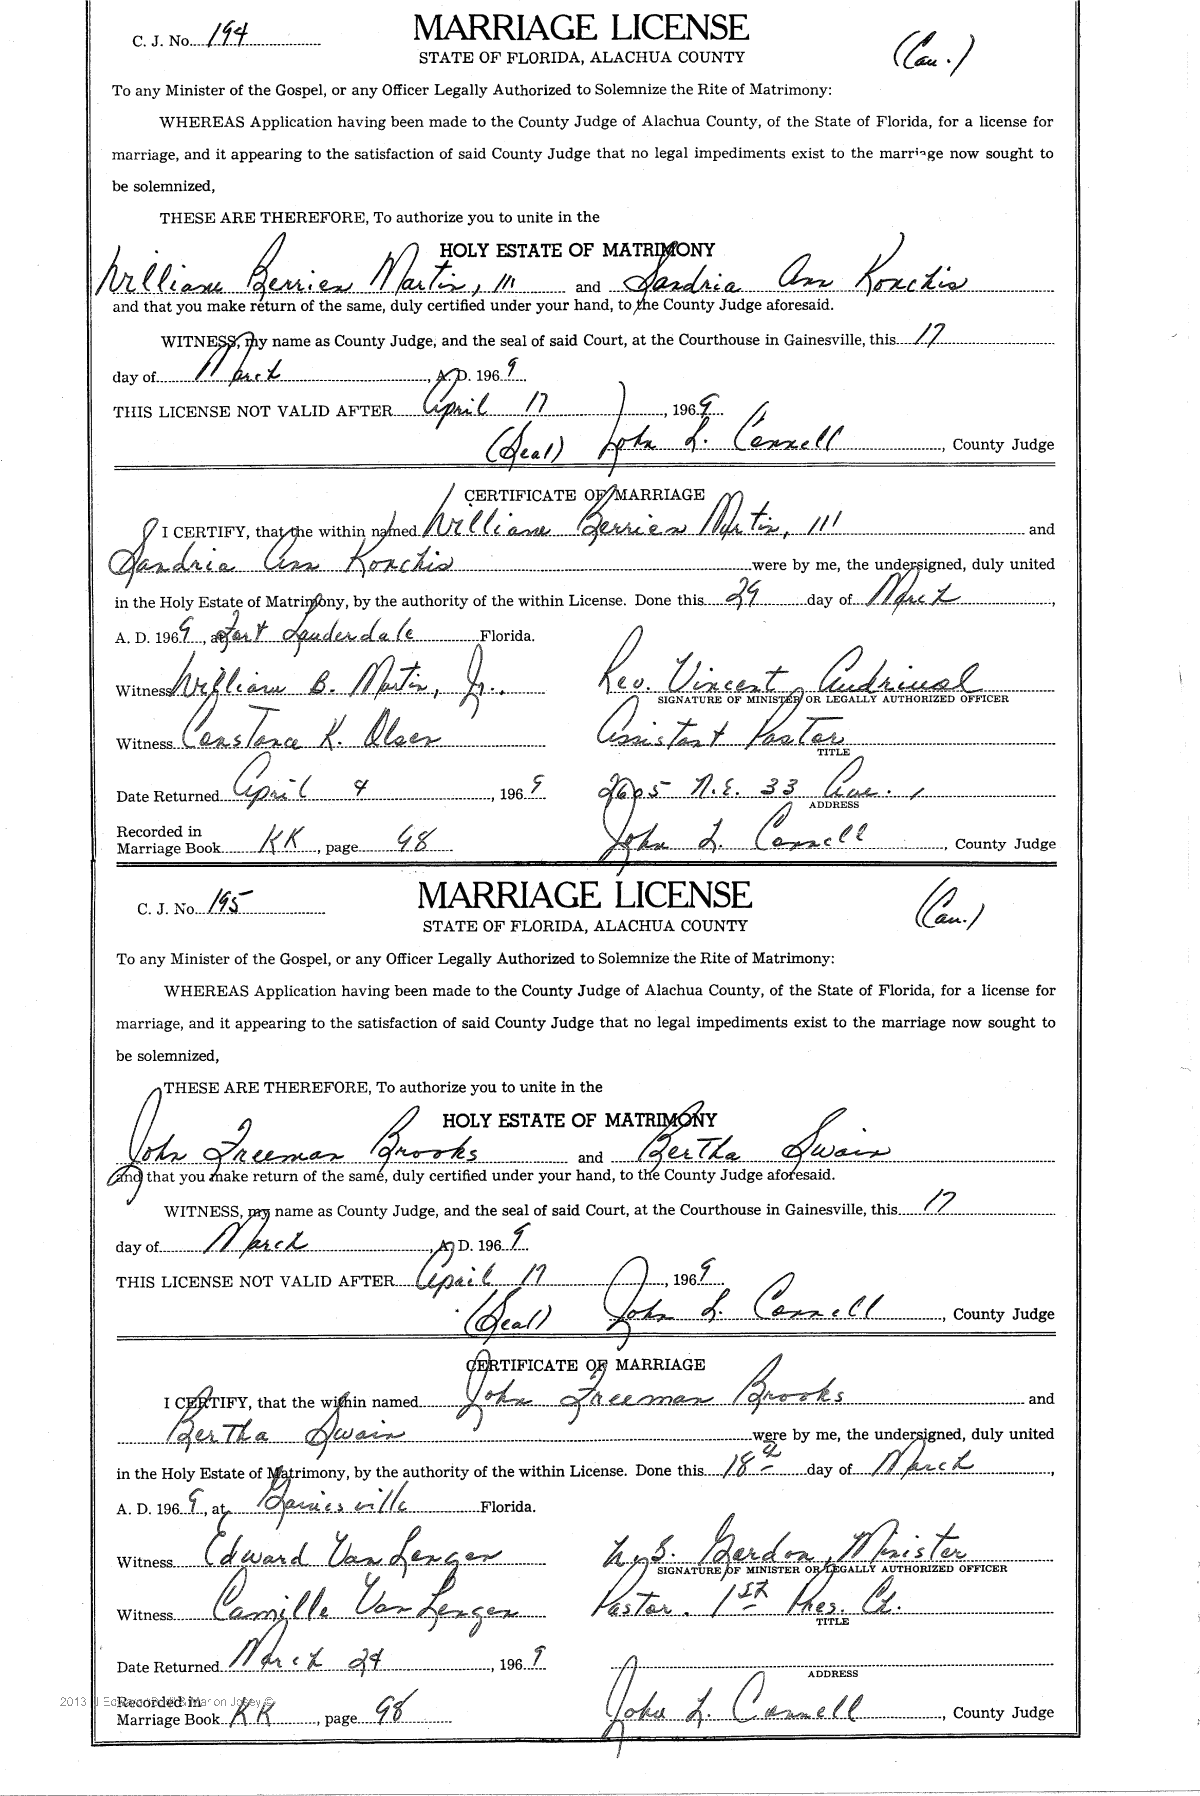 C. J. No. 194
MARRIAGE LICENSE
STATE OF FLORIDA, ALACHUA COUNTY
(Cau.)
To any Minister of the Gospel, or any Officer Legally Authorized to Solemnize the Rite of Matrimony:
WHEREAS Application having been made to the County Judge of Alachua County, of the State of Florida, for a license for
marriage, and it appearing to the satisfaction of said County Judge that no legal impediments exist to the marriage now sought to
be solemnized,
THESE ARE THEREFORE, To authorize you to unite in the
HOLY ESTATE OF MATRIMONY
William Berrien Martin, III and Sandria Ann Konchis
and that you make return of the same, duly certified under your hand, to the County Judge aforesaid.
WITNESS, my name as County Judge, and the seal of said Court, at the Courthouse in Gainesville, this 17
day of March, A. D. 1969
THIS LICENSE NOT VALID AFTER April 17, 1969
(Seal) John L. Connell, County Judge
CERTIFICATE OF MARRIAGE
I CERTIFY, that the within named William Berrien Martin, III and
Sandria Ann Konchis were by me, the undersigned, duly united
in the Holy Estate of Matrimony, by the authority of the within License. Done this 29 day of March,
A. D. 1969, at Fort Lauderdale Florida.
Witness William B. Martin, Jr. Rev. Vincent
SIGNATURE OF MINISTER OR LEGALLY AUTHORIZED OFFICER
Witness Constance K. Olsen Assistant Pastor
TITLE
Date Returned April 4, 1969 2605 N.E. 33 Ave.,
ADDRESS
Recorded in
Marriage Book KK, page 98 John L. Connell, County Judge
C. J. No. 195
MARRIAGE LICENSE
STATE OF FLORIDA, ALACHUA COUNTY
(Cau.)
To any Minister of the Gospel, or any Officer Legally Authorized to Solemnize the Rite of Matrimony:
WHEREAS Application having been made to the County Judge of Alachua County, of the State of Florida, for a license for
marriage, and it appearing to the satisfaction of said County Judge that no legal impediments exist to the marriage now sought to
be solemnized,
THESE ARE THEREFORE, To authorize you to unite in the
HOLY ESTATE OF MATRIMONY
John Freeman Brooks and Bertha Swain
and that you make return of the same, duly certified under your hand, to the County Judge aforesaid.
WITNESS, my name as County Judge, and the seal of said Court, at the Courthouse in Gainesville, this 17
day of March, A. D. 1969
THIS LICENSE NOT VALID AFTER April 17, 1969
(Seal) John L. Connell, County Judge
CERTIFICATE OF MARRIAGE
I CERTIFY, that the within named John Freeman Brooks and
Bertha Swain were by me, the undersigned, duly united
in the Holy Estate of Matrimony, by the authority of the within License. Done this 18th day of March,
A. D. 1969, at Gainesville Florida.
Witness Edward Van Lengen Gordon, Minister
SIGNATURE OF MINISTER OR LEGALLY AUTHORIZED OFFICER
Witness Camille Van Lengen Pastor. 1st Pres. Ch.
TITLE
Date Returned March 24, 1969
ADDRESS
Recorded in
Marriage Book KK, page 98 John L. Connell, County Judge